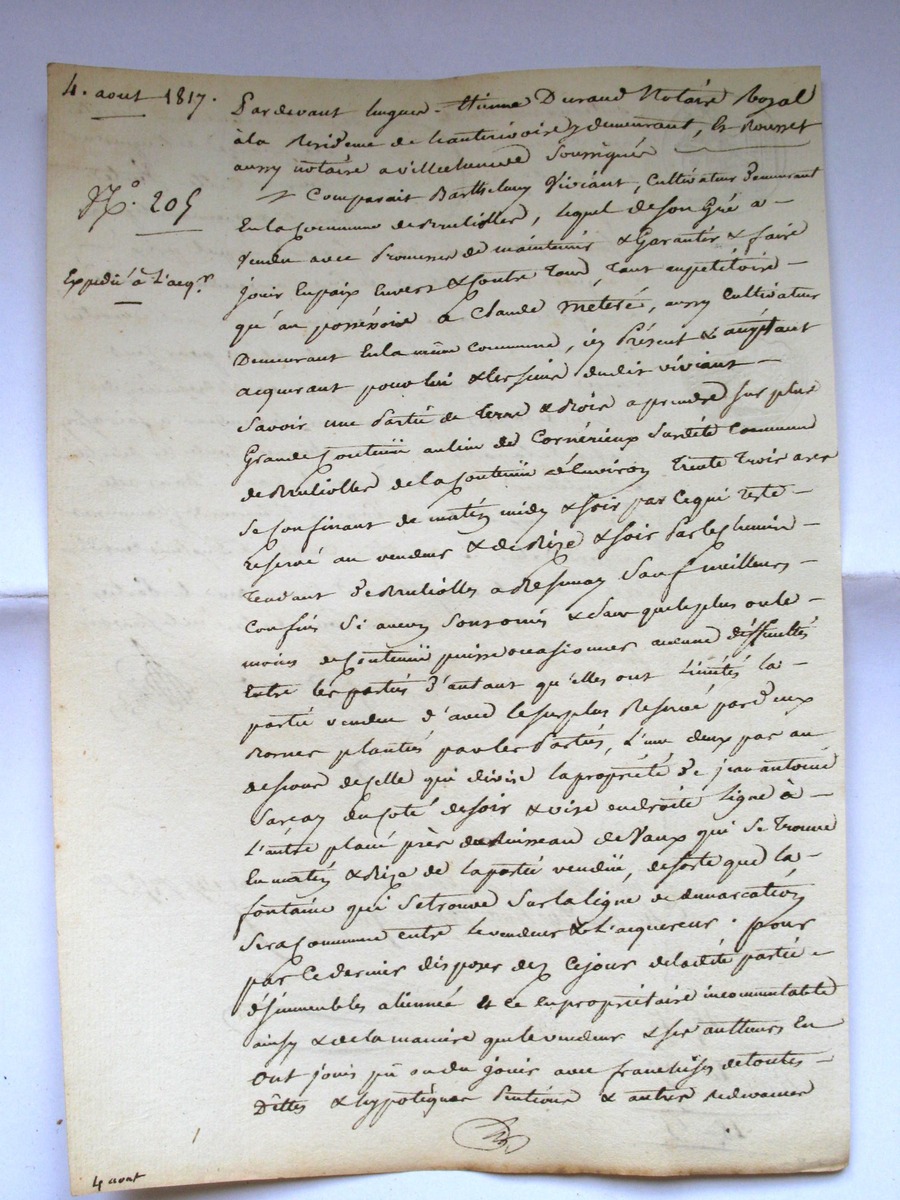 4. aout 1817.
Pardevant hugue Etienne Durand Notaire Royal
à la Residence de hauterivoire y demeurant, & Rousset
aussy notaire a villechenève Soussignés
N.° 205
Comparait Barthelemy Viviant, Cultivateur demeurant
En la Commune de Brulliolles, lequel de son Gré a
Vendu avec Promesse de maintenir & Garantir & faire
Expedié à l'acq.r
jouir En paix Envers & Contre Tous, Tant au petitoire
qu'au possessoire a Claude aussy Cultivateur
Demeurant En la même Commune, icy Présent & acceptant
acquerant pour lui & les siens dudit viviant
Savoir une Partie de Terre & Bois a prendre sur plus
Grande Contenüe au lieu de Cornérieux Susdite Commune
de Brulliolles de la Contenüe d'Environ Trente Trois ares
Se Confinant de matin midy & soir par Ce qui reste
reservé au vendeur & de Bize & soir Par le Chemin
Tendant de Brulliolles a Sauf meilleurs
Confins Si aucun Sont omis & Sans que le plus ou le
moins de Contenüe puisse occasionner aucune difficultés
Entre les parties d'autant qu'elles ont Limités la
partie vendue d'avec le surplus Reservé par deux
Bornes plantées par les Parties, L'une deux pas au
dessous de Celle qui divise la propriété de jean antoine
du Coté de soir & vise en droite ligne à
L'autre placé près du Ruisseau de Vaux qui se Trouve
En matin & Bize de la partie vendüe, de sorte que la
fontaine qui Se trouve Sur la ligne de demarcation
Sera Commune entre le vendeur & L'acquereur. pour
par Ce dernier disposer dez Ce jour de la dite partie
d'immeubles alienneé & ce en propriétaire incommutable
ainsy & de la maniere que le vendeur & ses autheurs En
Ont jouis pû ou du jouir avec franchises de toutes
Dettes & hypotèques Pentions & autres redevances
4 aout